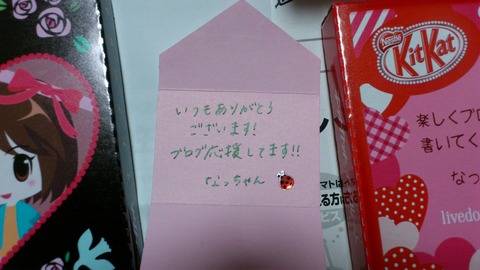 いつもありがとう
ございます!
ブログ応援してます!!
なっちゃん
Nestlé
KitKat
楽しくブロ
書いてく
なっ
livedo
マトは
える方に
ビス